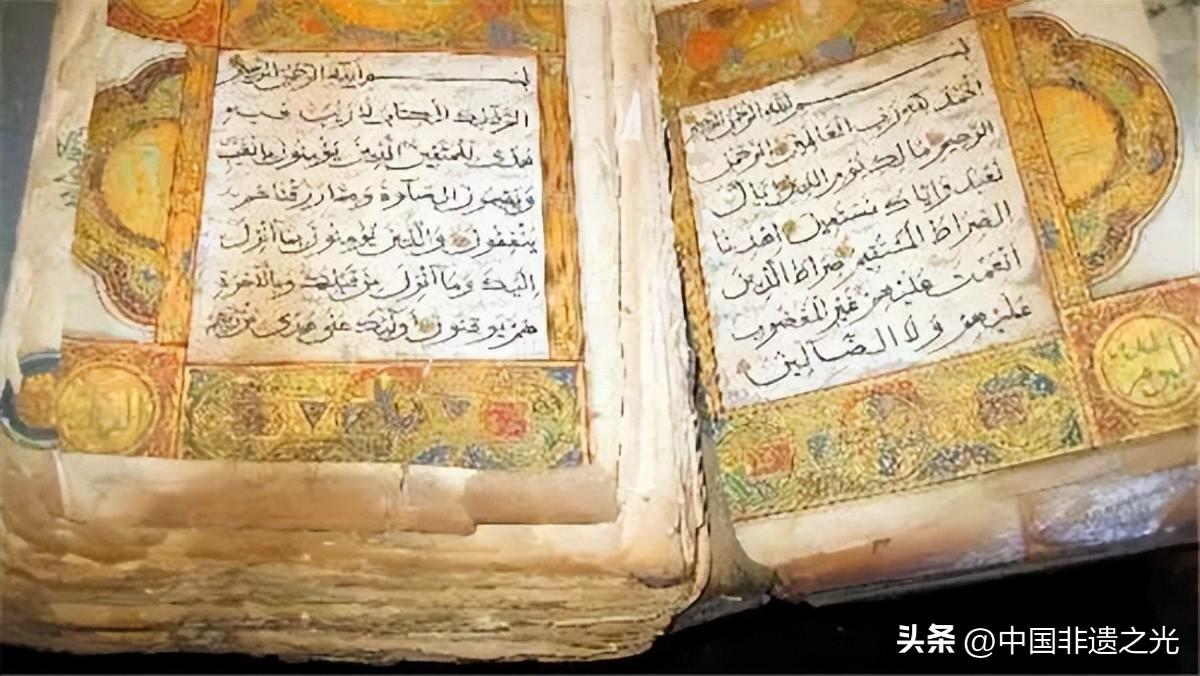 بسم الله الرحمن الرحيم
الحمد لله رب العالمين الرحمن
الرحيم مالك يوم الدين إياك
نعبد وإياك نستعين اهدنا
الصراط المستقيم صراط الذين
أنعمت عليهم غير المغضوب
عليهم ولا الضالين
بسم الله الرحمن الرحيم
الم ذلك الكتاب لا ريب فيه
هدى للمتقين الذين يؤمنون بالغيب
ويقيمون الصلوة ومما رزقناهم
ينفقون والذين يؤمنون بما أنزل
إليك وما أنزل من قبلك وبالآخرة
هم يوقنون أولئك على هدى من ربهم
头条 @中国非遗之光